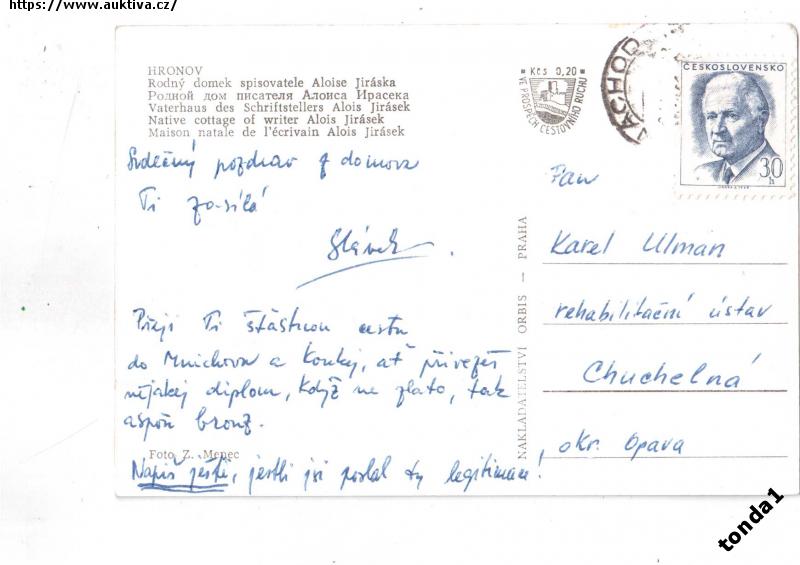 https://www.auktiva.cz/
HRONOV
Rodný domek spisovatele Aloise Jiráska
Родной дом писателя Алоиса Ирасека
Vaterhaus des Schriftstellers Alois Jirásek
Native cottage of writer Alois Jirásek
Maison natale de l'écrivain Alois Jirásek
Srdečný pozdrav z domova
Ti zasílá
Slávek.
Přeji Ti šťastnou cestu
do Mnichova a koukej, ať přivezeš
nějakej diplom, když ne zlato, tak
aspoň bronz.
Foto Z. Menec
Napiš ještě, jestli jsi poslal ty legitimace!
Kčs 0,20
VE PROSPĚCH CESTOVNÍHO RUCHU
NÁCHOD
ČESKOSLOVENSKO
30 h
NAKLADATELSTVÍ ORBIS — PRAHA
Pan
Karel Ulman
rehabilitační ústav
Chuchelná
okr. Opava
tonda1